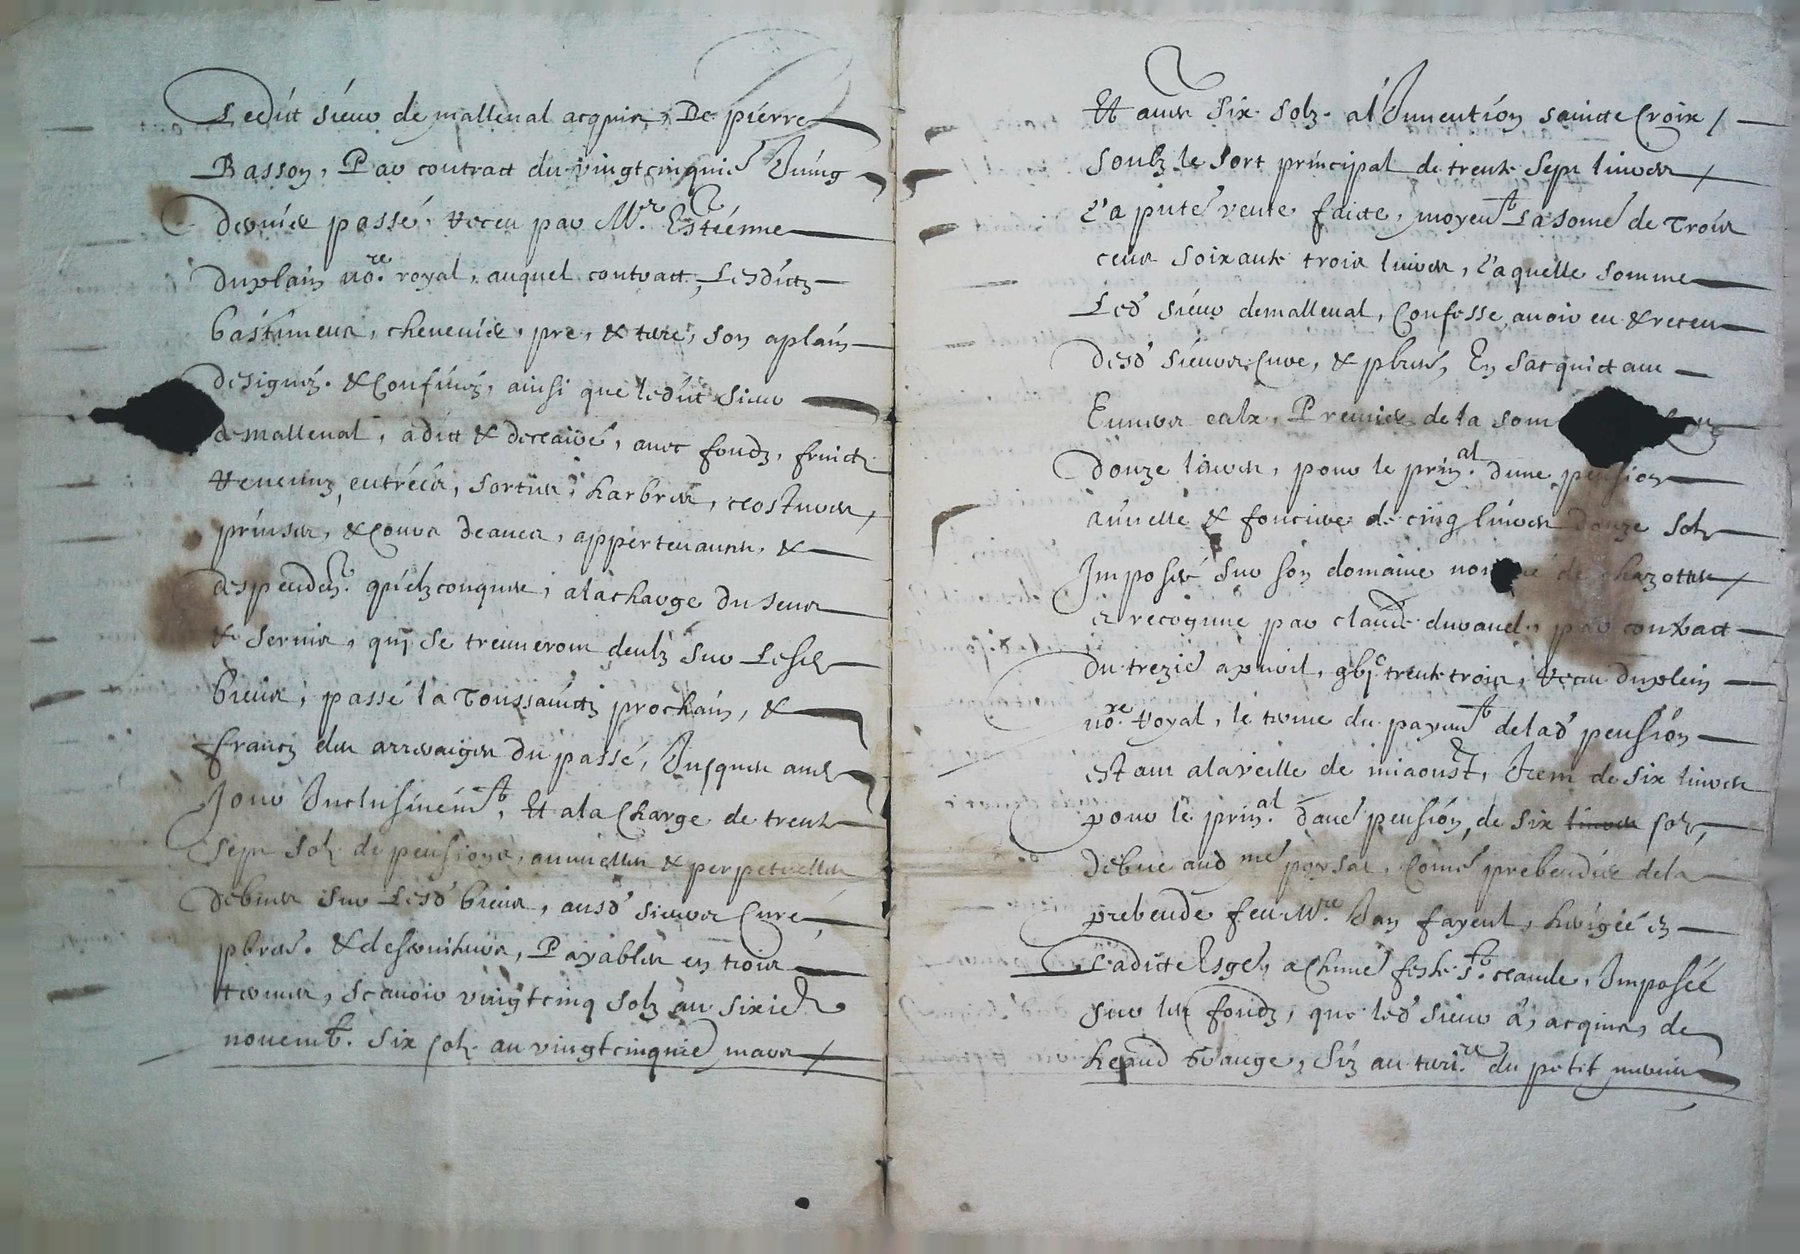 Ledict sieur de malleval acquis, De pierre
Basson, Par contract du vingtcinquie Juing
dernier passé. & receu par Mr. Estienne
duplain nore. royal, auquel contract, Lesdictz
bastimens, chenevier, pre, & terre, son aplain
designez. & confinez, ainsi que ledict sieur
demalleval, a dict & declairé, avec fondz, fruictz
revenuz, entrées, sorties, harbres, clostures,
prinses, & cours deaues, appertenances, &
despenden. quelzconques, alacharge du sens
& servis, qui se treuveront deubz sur Lesdz
biens, passé la Toussainctz prochain, &
francz des arreraiges du passé, Jusques aud
Jour Inclusivemt, Et ala Charge de trente
sept solz de pensions, annuelles & perpetuelles
debues sur Lesd biens, ausd sieurs Curé,
pbres. & desserviteurs, Payables en trois
termes, scavoir vingtcinq solz au sixie
novemb. six solz. au vingtcinquie mars /
Et aues six solz. al Jnvention saincte Croix /
soubz le sort principal de trente sept livres /
La pnte vente faicte, moyent La some de Trois
cens soixante trois livres, Laquelle somme
Led sieur demalleval, Confesse avoir eu & receu
desd sieurs Cure, & pbres, En sacquictant
Envers ealx, Premier de la som
douze livres, pour le prinal. dune pension
annuelle & fonciere de cinq livres douze solz
Imposée sur son domaine de chazottes /
et recognue par claude durand, par contract
du trezie apvril, gbjc trente trois, receu duplein
nore. Royal, le terme du payemt delad pension
estant alaveille de miaoust, Item de six livres
pour le prinal. daue pension, de six livres solz,
debue aud me poysat, Come prebendier dela
prebende feu Mre. Jan fayeul, herigée en
Ladicte Esgel, a Chune feste St. claude, Imposée
sur les fondz, que led sieur a, acquis, de
heaud Evange, siz au terre. du petit